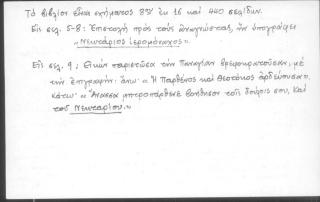 Τὸ βιβλίον εἶναι σχήματος 8ον ἐκ 16 καὶ 440 σελίδων.
Εἰς σελ. 5-8: Ἐπιστολὴ πρὸς τοὺς ἀναγνώστας, ἣν ὑπογράφει
"Νεκτάριος ἱερομόναχος"
Εἰς σελ. 9: Εἰκὼν παριστῶσα τὴν Παναγίαν βρεφοκρατοῦσαν, μὲ
τὴν ἐπιγραφήν: ἄνω· "Ἡ Παρθένος καὶ Θεοτόκος
κάτω· "Ἄνασσα μητροπάρθενε βοήθησον τοῖς δούλοις σου, καὶ
τοῦ Νεκταρίου."